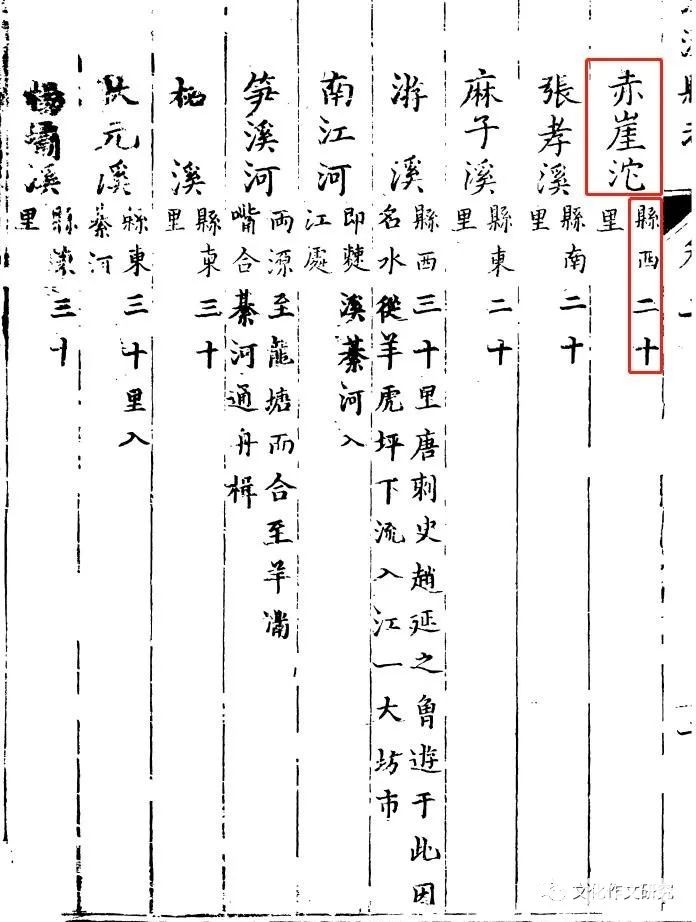 赤崖沱 縣西二十里
張孝溪 縣南二十里
麻子溪 縣東二十里
游溪 縣西三十里唐刺史趙延之魯遊于此因
名水從羊虎坪下流入江一大坊市
南江河 即夔溪綦河入
江處
笋溪河 兩源至龍塘而合至羊
嘴合綦河通舟楫
柲溪 縣東三十里
狀元溪 縣東三十里入
綦河
縣 三十里
文化作文研究